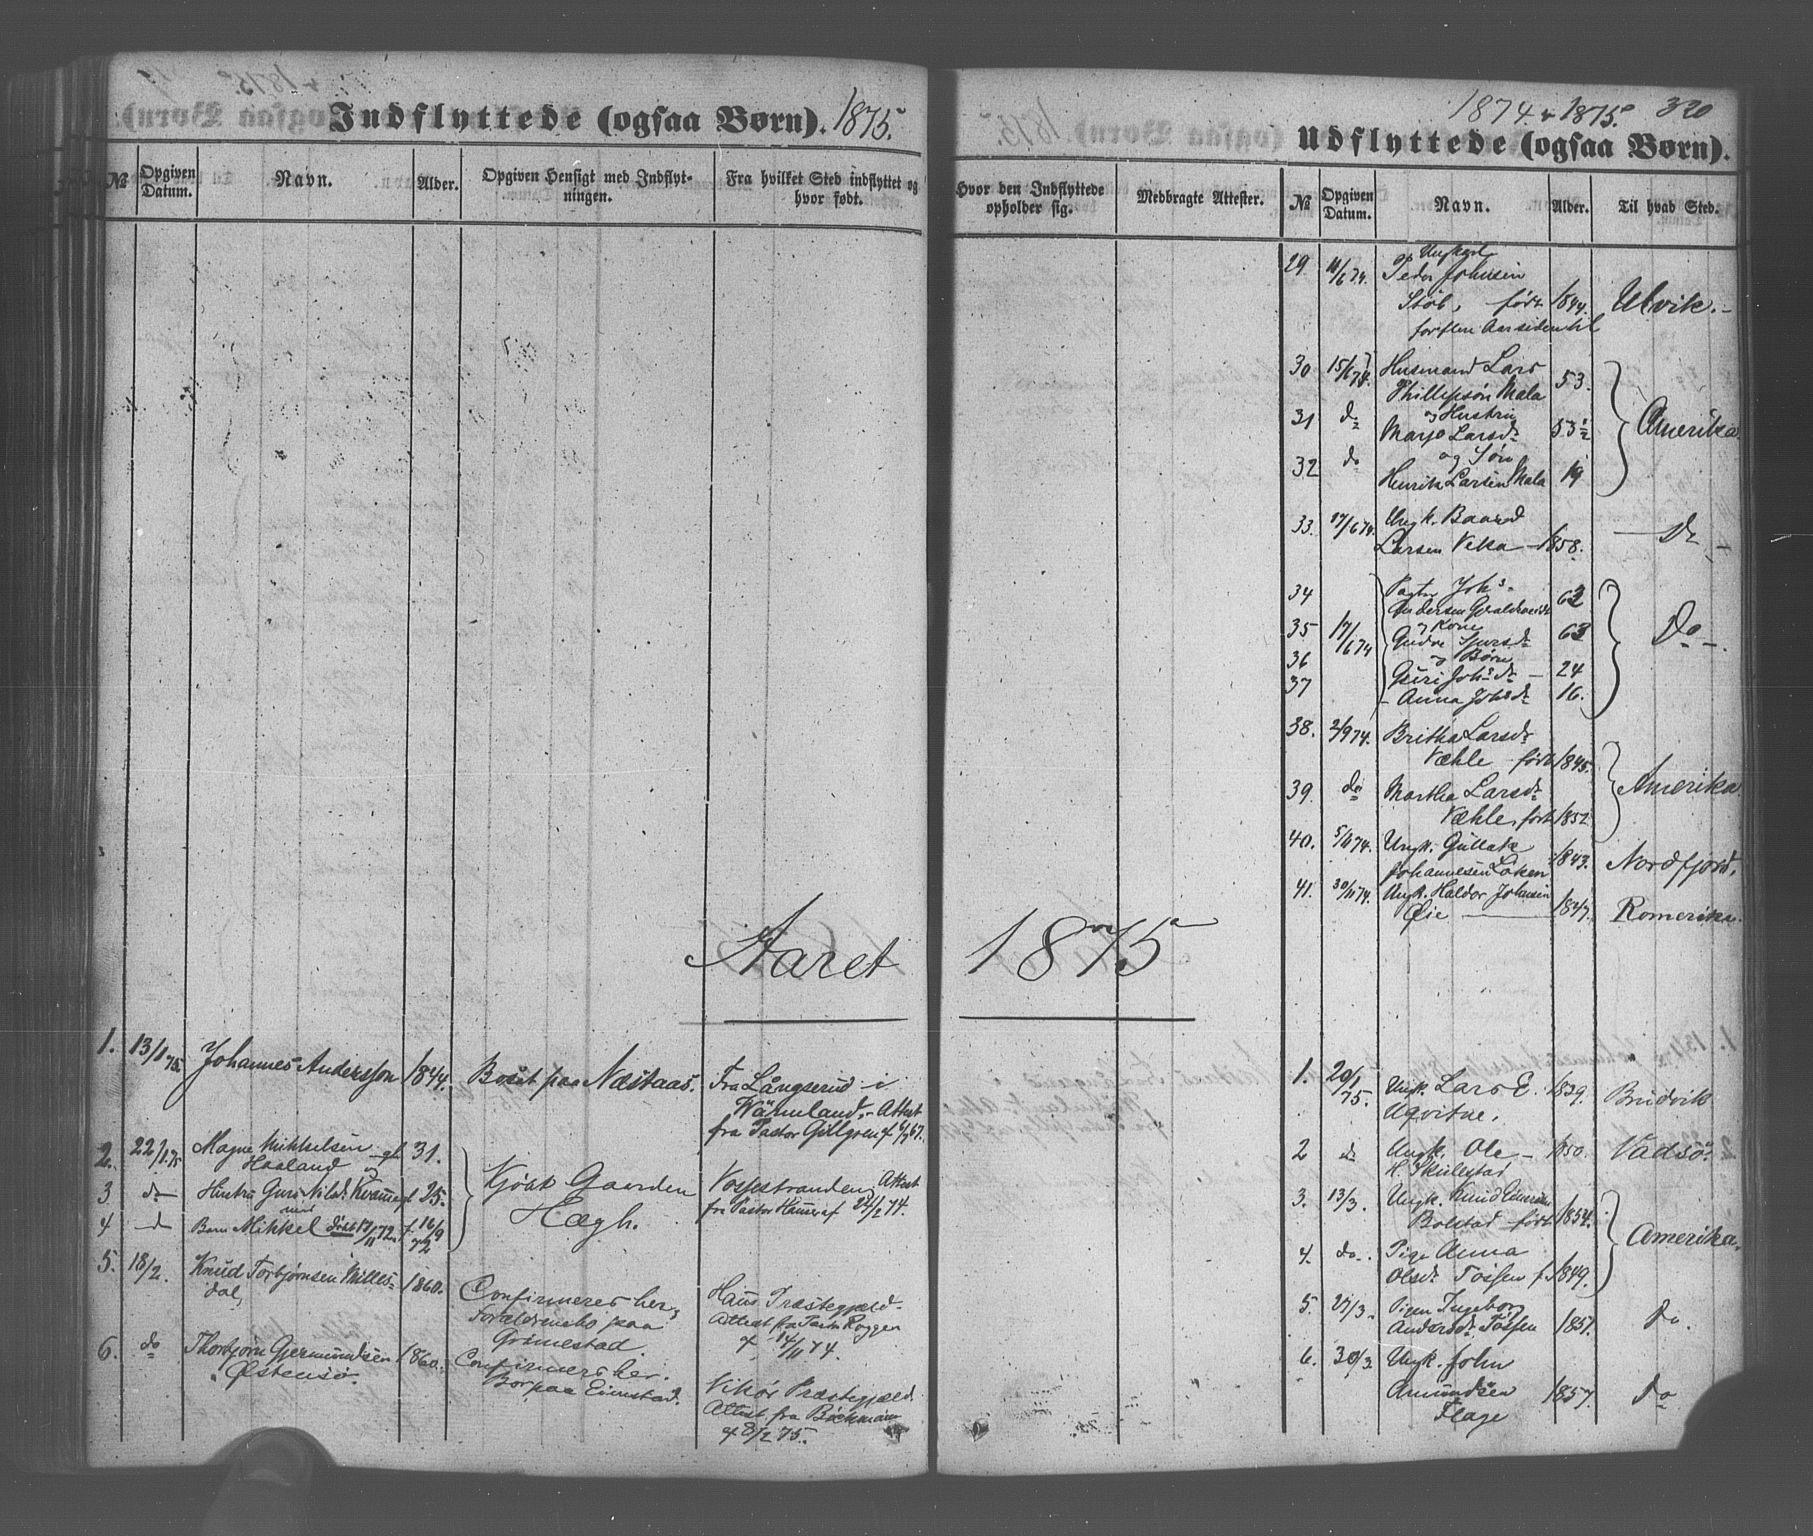 Indflyttede (ogsaa Børn). 1875.
№
Opgiven Datum.
Navn.
Alder.
Opgiven Hensigt med Indflyt-
ningen.
Fra hvilket Sted indflyttet og
hvor født.
Aaret
1. 13/1 75. Johannes Andersson 1844. Bosat paa Næstaas. Fra Långserud i
Wärmland. Attest
fra Pastor Gillgren
2. 22/1 75 Magne Mikkelsen
Haaland og 31.
3 do Hustru Guri Nilsd. Kvamme 25.
4 do Barn Mikkel født 17/11 72. f. 16/9
72
Kjøbt Gaarden
Hægh.
Vossestranden, Attest
fra Pastor 24/2 74.
5. 18/2. Knud Torbjørnsen Milles-
dal, 1860.
Confirmeres her,
Forældrene bo paa
Grimestad.
Haus Præstegjæld.
Attest fra Pastor Roggen
af 14/11 74.
6. do Thorbjørn Gjermundsen
Østensø. 1860.
Confirmeres her.
Bor paa
Vikør Præstegjæld.
Attest fra Böckmann
af 8/2 75.
1874 & 1875. 320
Udflyttede (ogsaa Børn).
Hvor den Indflyttede
opholder sig.
Medbragte Attester.
№
Opgiven
Datum.
Navn.
Alder.
Til hvad Sted.
29. 11/6 74. Ungkarl
Peder Johnsen
født 1844. Ulvik.
30 15/6 74. Husmand Lars
Phillipsøn Mala 53.
31 do og Hustru
Marjo Larsdr 53½
32 do og Søn
Henrik Larsen Mala 19
Amerika.
33. 17/6 74. Ungk. Baard
Larsen Veka 1858. Do
34 Johs
Andersen 62
35 17/6 74 og Kone
Sjursdr 63
36 og Børn
Guri Johsdr 24
37 Anna Johsdr 16.
Do
38. 2/9 74. Britha Larsdr
Væhle født 1845.
39. do Martha Larsdr
Væhle, født 1852.
Amerika.
40. 5/11 74. Ungk. Gullak
Johannesen Løken 1843. Nordfjord.
41. 30/11 74. Ungk. Haldor Johnsen
Øie 1847. Romerike.
1875
1. 20/1 75. Ungk. Lars E.
Uqvitne. 1839.
2 do Ungk. Ole
H. Skiilestad 1850. Vadsø.
3. 13/3. Ungk. Knud
Bolstad født 1854.
4. do. Pige Anna
Olsdr Tøssen f. 1849.
Amerika.
5. 27/3. Pigen Ingeborg
Andersdr Tøssen 1857. do.
6. 30/3. Ungk. John
Amundsen
Flage 1857. do